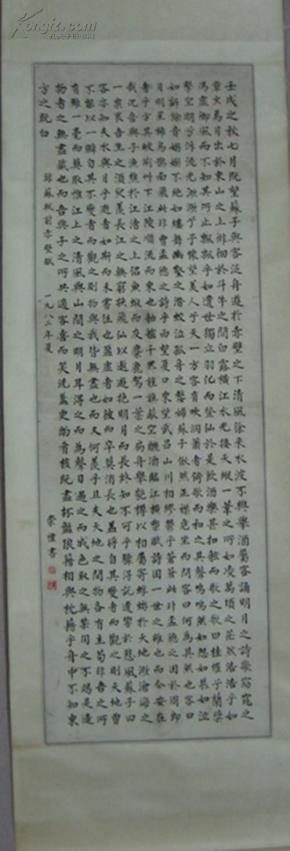 壬戌之秋七月既望蘇子與客泛舟遊於赤壁之下清風徐來水波不興舉酒屬客誦明月之詩歌窈窕之
章少焉月出於東山之上徘徊於斗牛之間白露橫江水光接天縱一葦之所如凌萬頃之茫然浩浩乎如
馮虛御風而不知其所止飄飄乎如遺世獨立羽化而登仙於是飲酒樂甚扣舷而歌之歌曰桂棹兮蘭槳
擊空明兮泝流光渺渺兮予懷望美人兮天一方客有吹洞簫者倚歌而和之其聲嗚嗚然如怨如慕如泣
如訴餘音嫋嫋不絕如縷舞幽壑之潛蛟泣孤舟之嫠婦蘇子愀然正襟危坐而問客曰何為其然也客曰
月明星稀烏鵲南飛此非曹孟德之詩乎西望夏口東望武昌山川相繆鬱乎蒼蒼此非孟德之困於周郎
者乎方其破荊州下江陵順流而東也舳艫千里旌旗蔽空釃酒臨江橫槊賦詩固一世之雄也而今安在
哉況吾與子漁樵於江渚之上侶魚蝦而友麋鹿駕一葉之扁舟舉匏樽以相屬寄蜉蝣於天地渺滄海之
一粟哀吾生之須臾羨長江之無窮挾飛仙以遨遊抱明月而長終知不可乎驟得託遺響於悲風蘇子曰
客亦知夫水與月乎逝者如斯而未嘗往也盈虛者如彼而卒莫消長也蓋將自其變者而觀之則天地曾
不能以一瞬自其不變者而觀之則物與我皆無盡也而又何羨乎且夫天地之間物各有主苟非吾之所
有雖一毫而莫取惟江上之清風與山間之明月耳得之而為聲目遇之而成色取之無禁用之不竭是造
物者之無盡藏也而吾與子之所共適客喜而笑洗盞更酌肴核既盡杯盤狼藉相與枕藉乎舟中不知東
方之既白
錄蘇軾前赤壁賦 一九八三年夏
書